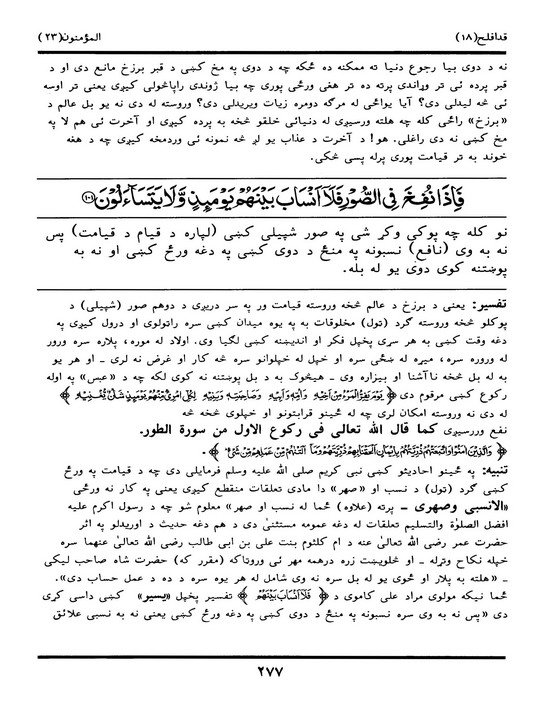 قدافلح(١٨) المؤمنون(٢٣)
نه د دوی بیا رجوع دنیا ته ممکنه ده ځکه چه د دوی په مخ کښی د قبر برزخ مانع دی او د
قبر پرده ئی تر وړاندی پرته ده تر هغی ورځی پوری چه بیا ژوندی راپاڅولی کیږی یعنی تر اوسه
ئی څه لیدلی دی؟ آیا یواځی له مرګه دومره زیات ویریدلی دی؟ وروسته له دی نه یو بل عالم د
«برزخ» راځی کله چه هلته ورسیږی له دنیائی خلقو څخه په پرده کیږی او آخرت ئی هم لا په
مخ کښی نه دی راغلی. هو! د آخرت د عذاب یو لږ څه نمونه ئی وردمخه کیږی چه د هغه
خوند به تر قیامت پوری پرله پسی څکی.
فَاِذَا نُفِخَ فِی الصُّوْرِ فَلَاۤ اَنْسَابَ بَیْنَهُمْ یَوْمَىِٕذٍ وَّلَا یَتَسَآءَلُوْنَ ۝۱۰۱
نو کله چه پوکی وکړ شی په صور شپیلی کښی (لپاره د قیام د قیامت) پس
نه به وی (نافع) نسبونه په منځ د دوی کښی په دغه ورځ کښی او نه به
پوښتنه کوی دوی یو له بله.
تفسیر: یعنی د برزخ د عالم څخه وروسته قیامت ور په سر دریږی د دوهم صور (شپیلی) د
پوکلو څخه وروسته ګرد (تول) مخلوقات به په یوه میدان کښی سره راتولوی او درول کیږی په
دغه وقت کښی به هر سری پخپل فکر او اندیښنه کښی لګیا وی. اولاد له موره، پلاره سره ورور
له وروره سره، میړه له ښځی سره او خپل له خپلوانو سره څه کار او غرض نه لری ـ او هر یو
به له بل څخه ناآشنا او بیزاره وی ـ هیڅوک به د بل پوښتنه نه کوی لکه چه د «عبس» په اوله
رکوع کښی مرقوم دی ﴿ یَوْمَ یَفِرُّ الْمَرْءُ مِنْ اَخِیْهِ وَاُمِّهٖ وَاَبِیْهِ وَصَاحِبَتِهٖ وَبَنِیْهِ لِکُلِّ امْرِئٍ مِّنْهُمْ یَوْمَىِٕذٍ شَاْنٌ یُّغْنِیْهِ ﴾
له دی نه وروسته امکان لری چه له ځینو قرابتونو او خپلوی څخه څه
نفع وررسیږی کما قال الله تعالی فی رکوع الاول من سورة الطور.
﴿ وَالَّذِیْنَ اٰمَنُوْا وَاتَّبَعَتْهُمْ ذُرِّیَّتُهُمْ بِاِیْمَانٍ اَلْحَقْنَا بِهِمْ ذُرِّیَّتَهُمْ وَمَاۤ اَلَتْنٰهُمْ مِّنْ عَمَلِهِمْ مِّنْ شَیْءٍ ﴾ .
تنبیه: په ځینو احادیثو کښی نبی کریم صلی الله علیه وسلم فرمایلی دی چه د قیامت په ورځ
کښی ګرد (تول) د نسب او «صهر» دا مادی تعلقات منقطع کیږی یعنی په کار نه ورځی
«الانسبی وصهری ـ پرته (علاوه) ځما له نسب او صهر» معلوم شو چه د رسول اکرم علیه
افضل الصلوٰة والتسلیم تعلقات له دغه عمومه مستثنیٰ دی د هم دغه حدیث د اوریدلو په اثر
حضرت عمر رضی الله تعالیٰ عنه د ام کلثوم بنت علی بن ابی طالب رضی الله تعالیٰ عنهما سره
خپله نکاح وتړله ـ او څلویښت زره درهمه مهر ئی وروتاکه (مقرر که) حضرت شاه صاحب لیکی
ـ «هلته به پلار او ځوی یو له بل سره نه وی شامل له هر یوه سره د ده د عمل حساب دی».
ځما نیکه مولوی مراد علی کاموی د ﴿ فَلَاۤ اَنْسَابَ بَیْنَهُمْ ﴾ تفسیر پخپل «یسیر» کښی داسی کړی
دی «پس نه به وی سره نسبونه په منځ د دوی کښی په دغه ورځ کښی یعنی نه به نسبی علائق
٢٧٧